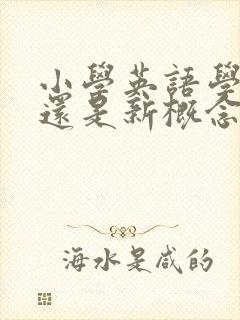 小學英語學
還是新概念
海水是咸的